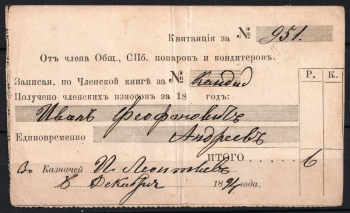 Квитанція за № 951.
Отъ члена Общ., СПб. поваровъ и кондитеровъ.
Записан. по Членской книгѣ за № Кандид Р. К.
Получено членскихъ взносовъ за 18 годъ:
Иванъ Феофановичъ
Единовременно Андреевъ
ИТОГО 6
Казначей П. Леонтьев
8 Декабря 1894 года.